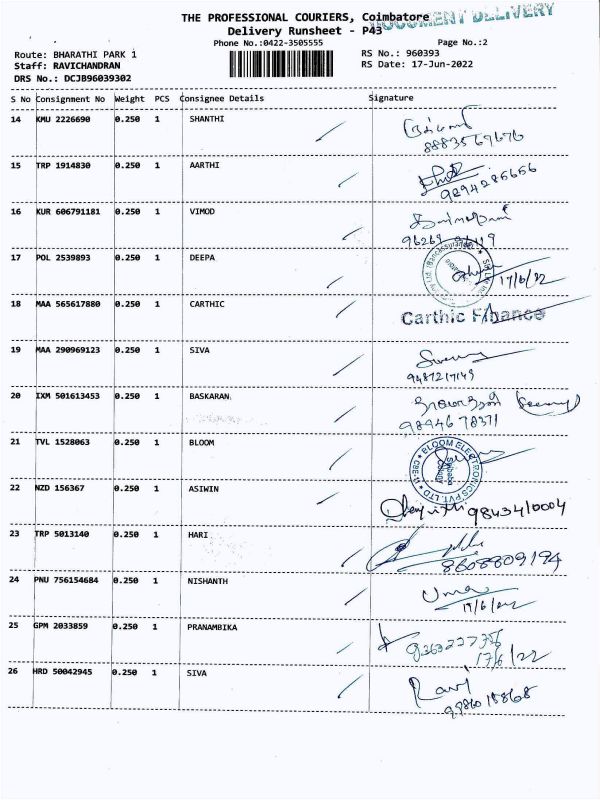 THE PROFESSIONAL COURIERS, Coimbatore
DOCUMENT DELIVERY
Delivery Runsheet - P43
Phone No.:0422-3505555
Page No.:2
Route: BHARATHI PARK 1
RS No.: 960393
Staff: RAVICHANDRAN
RS Date: 17-Jun-2022
DRS No.: DCJB96039302
S No Consignment No Weight PCS Consignee Details Signature
14 KMU 2226690 0.250 1 SHANTHI
8883569676
15 TRP 1914830 0.250 1 AARTHI
9294285656
16 KUR 606791181 0.250 1 VIMOD
17 POL 2539893 0.250 1 DEEPA
17/6/22
18 MAA 565617880 0.250 1 CARTHIC
Carthic Finance
19 MAA 290969123 0.250 1 SIVA
20 IXM 501613453 0.250 1 BASKARAN
9894678371
21 TVL 1528063 0.250 1 BLOOM
BLOOM ELECTRONICS PVT. LTD
CBE-11
22 NZD 156367 0.250 1 ASIWIN
9843410004
23 TRP 5013140 0.250 1 HARI
8608809194
24 PNU 756154684 0.250 1 NISHANTH
Uma
17/6/22
25 GPM 2033859 0.250 1 PRANAMBIKA
17/6/22
26 HRD 50042945 0.250 1 SIVA
Ravi